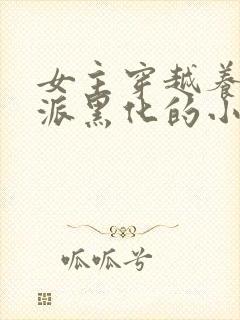 女主穿越养
派黑化的小
呱呱兮